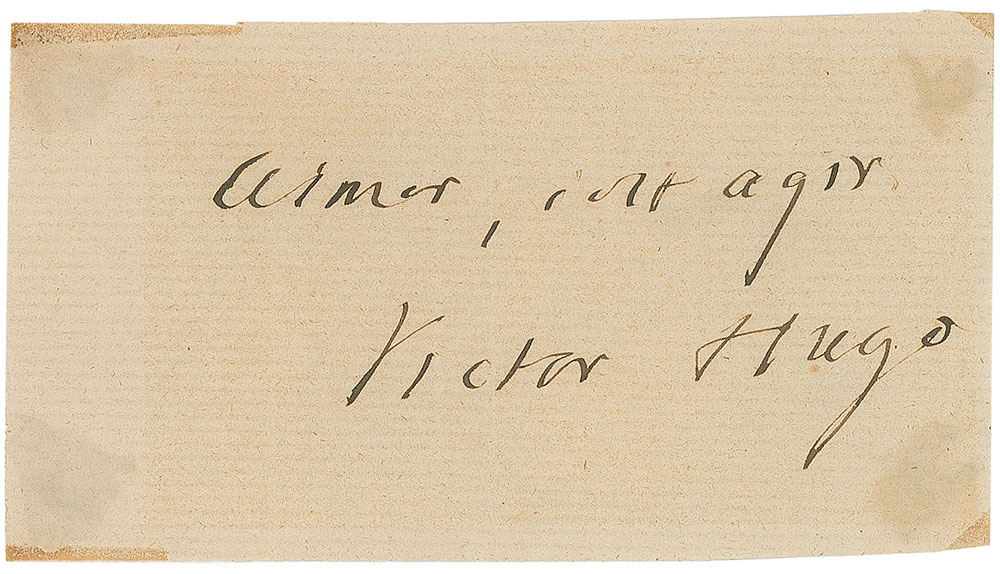 Aimer, c'est agir
Victor Hugo